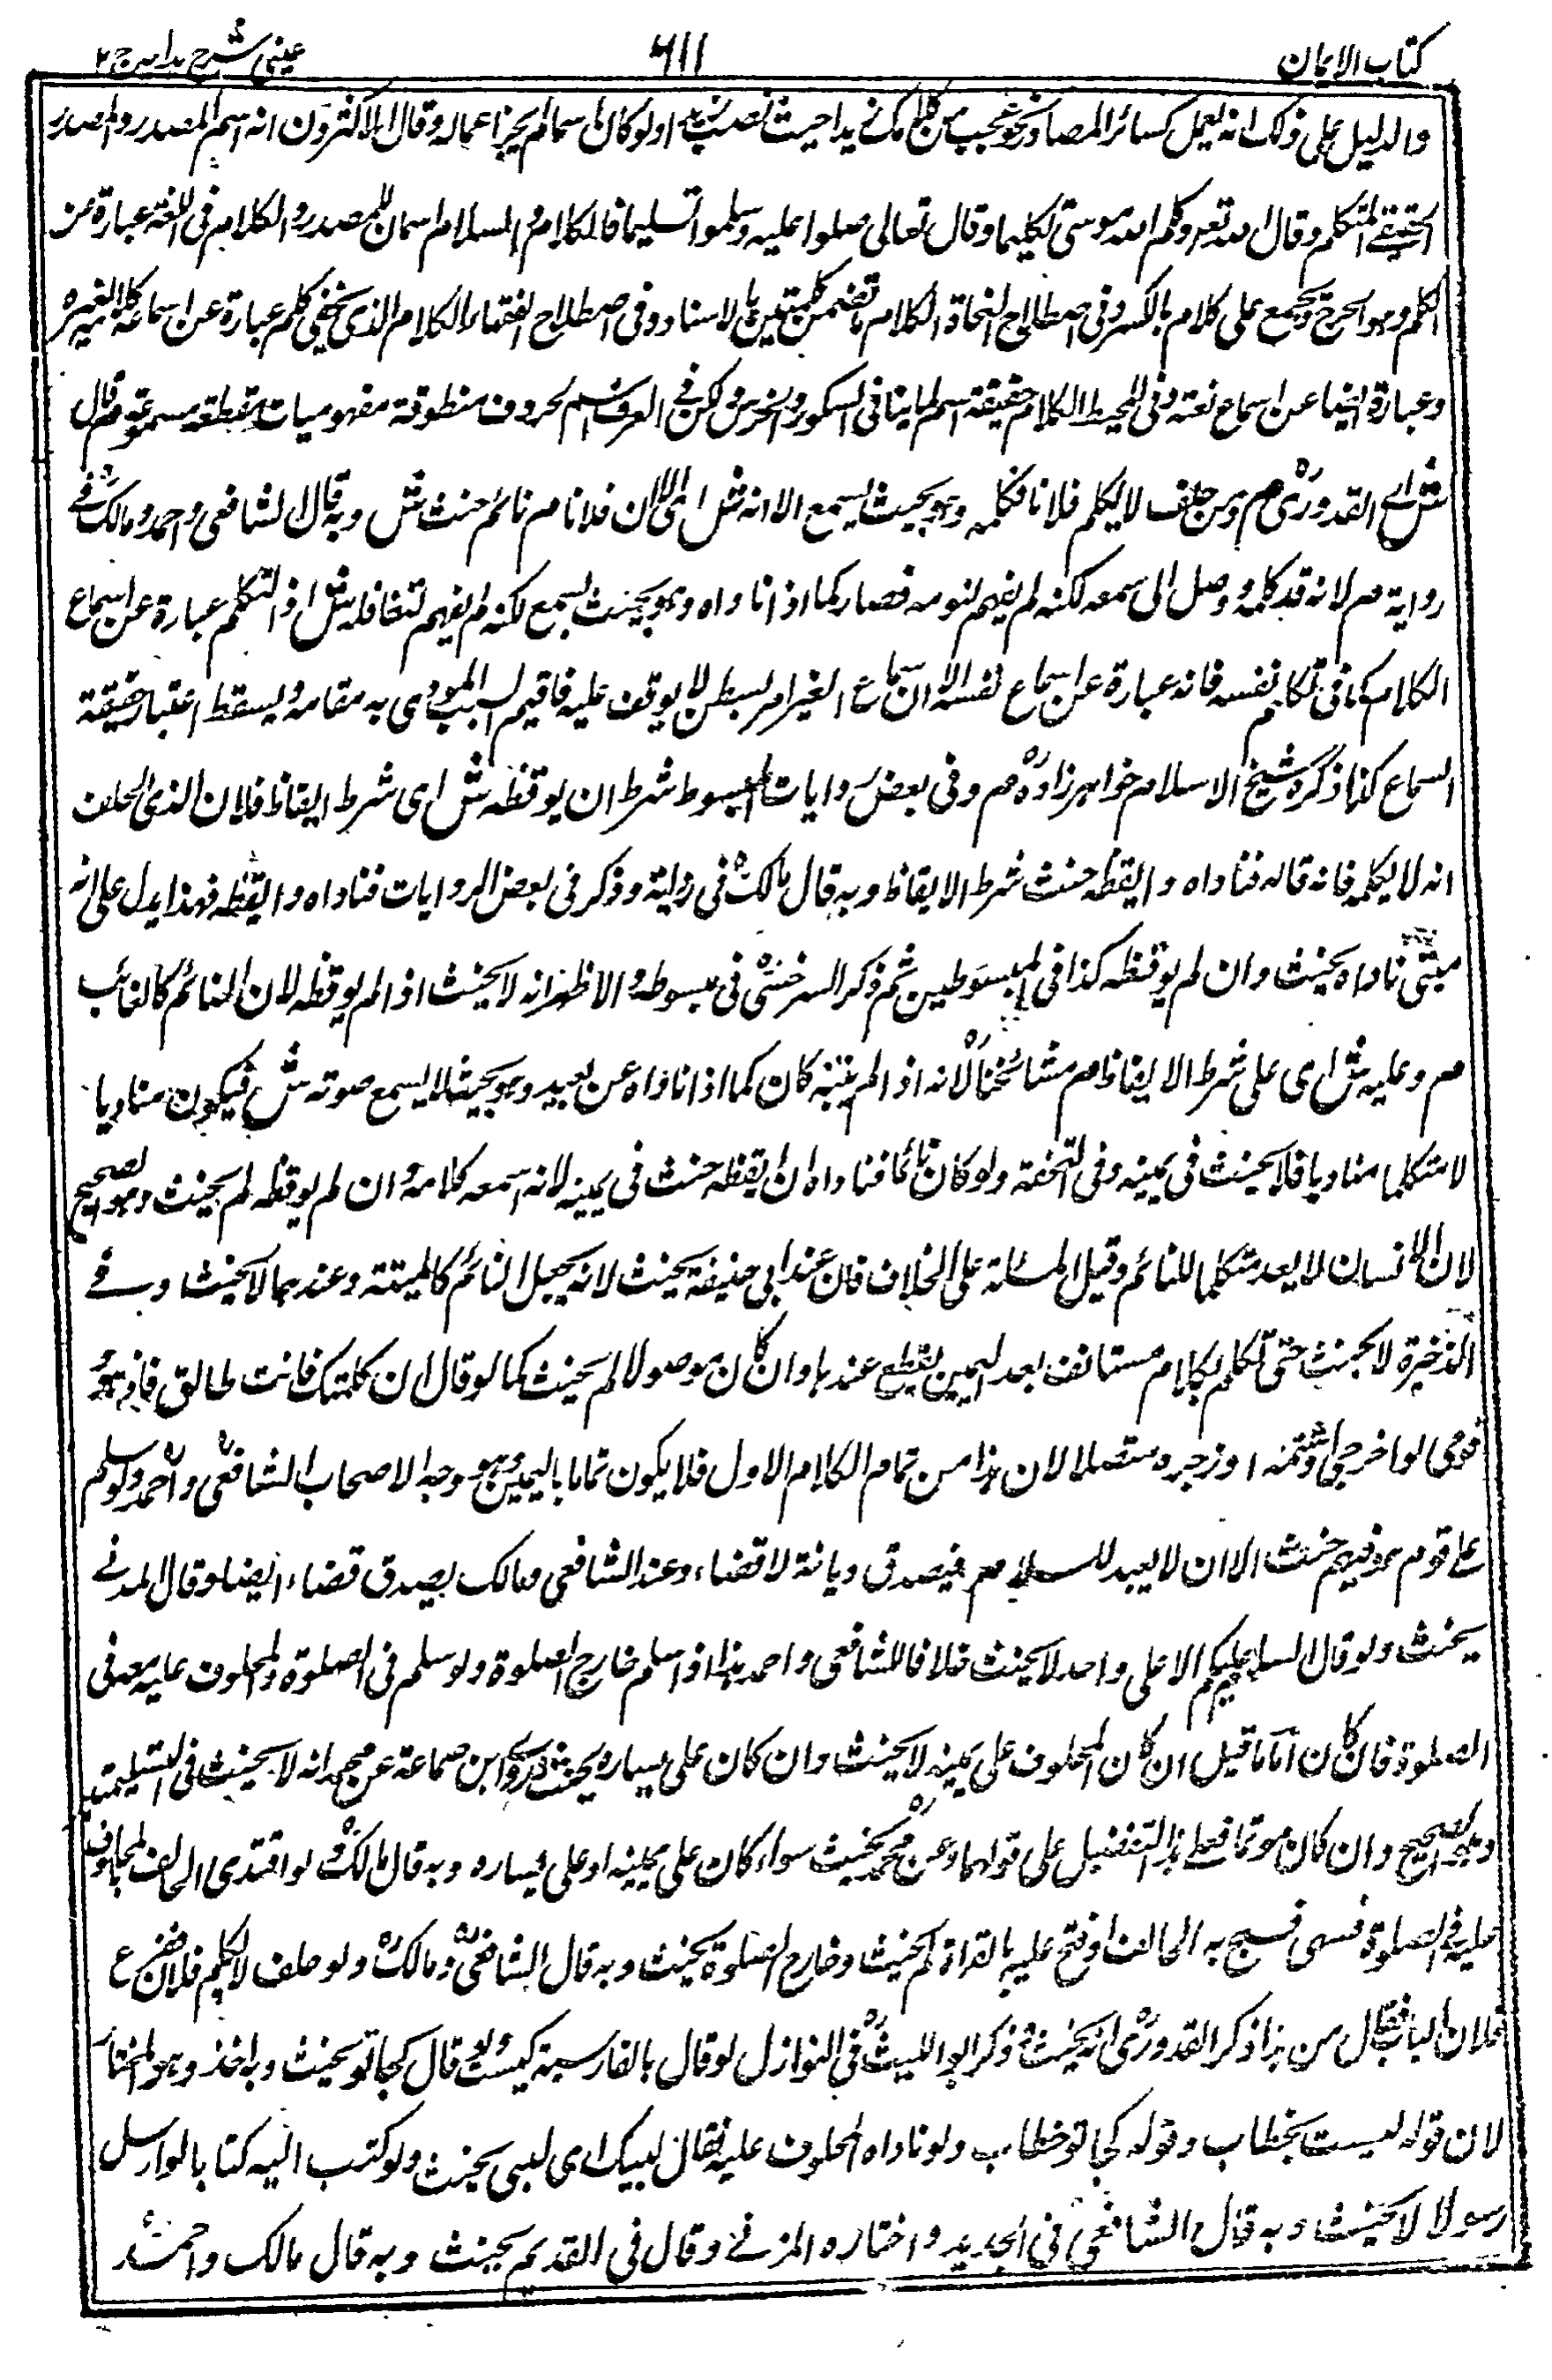 كتاب الايمان
٦١١
عينى شرح هدايه ج ٢
والدليل على ذلك انه يعمل كسائر المصادر نحو عجبت من كلامك زيدا حيث نصب زيد او لو كان اسما لم يجز اعماله وقال الاكثرون انه اسم المصدر والمصدر
الحقيقے التكلم وقال الله تعم وكلم الله موسى تكليما وقال تعالى صلوا عليه وسلموا تسليما فالكلام والسلام اسمان للمصدر والكلام فى اللغة عبارة عن
الكلم وهو الجرح ويجمع على كلام بالكسر وفى اصطلاح النحاة الكلام ما تضمن كلمتين بالاسناد وفى اصطلاح الفقهاء الكلام الذى عبارة عن اسماع كلامه غيره
وعبارة ايضا عن اسماع نفسه وفى المحيط الكلام حقيقة اسم لما ينافى السكوت والخرس ولكن فے العرف اسم لحروف منظومة مفهومة مقطعة مسموعة م قال
ش اے القدورى م ومن حلف لا يكلم فلانا فكلمه وهو بحيث يسمع الا انه ش اى الا ان فلانا م نائم حنث ش وبه قال الشافعى واحمد ومالك فے
رواية م لانه قد كلمه ووصل الى سمعه لكنه لم يفهم لنومه فصار كما اذا ناداه وهو بحيث يسمع لكنه لم يفهم لتغافله ش اذ التكلم عبارة عن اسماع
الكلام كما فى تكلم نفسه فانه عبارة عن اسماع نفسه الا ان سماع الغير امر مبطن لا يوقف عليه فاقيم السبب المودى به مقامه ويسقط اعتبار حقيقة
السماع كذا ذكره شيخ الاسلام خواهرزاده م وفى بعض روايات المبسوط شرط ان يوقظه ش اى شرط ايقاظ فلان الذى حلف
انه لا يكلمه فانه قال فناداه وايقظه حنث شرط الايقاظ وبه قال مالك فى رواية وذكر فى بعض الروايات فناداه وايقظه فهذا يدل على انه
متى ناداه يحنث وان لم يوقظه كذا فى المبسوطين ثم ذكر السرخسى فى مبسوطه والاظهر انه لا يحنث اذا لم يوقظه لان النائم كالغائب
م وعليه ش اى على شرط الايقاظ م مشائخنا لانه اذا لم ينتبه كان كما اذا ناداه عن بعيد وهو بحيث لا يسمع صوته ش فيكون مناديا
لا متكلما مناديا فلا يحنث فى يمينه وفى التحفة ولو كان نائما فناداه ان ايقظه حنث فى يمينه لانه اسمعه كلامه وان لم يوقظه لم يحنث وهو الصحيح
لان الانسان لا يعد متكلما للنائم وقيل المسئلة على الخلاف فان عند ابى حنيفة يحنث لانه يجعل النائم كالميتة وعندهما لا يحنث وفے
الذخيرة لا يحنث حتى تكلم بكلام مستانف بعد اليمين يقطع عنها وان كان موصولا لم يحنث كما لو قال ان كلمتك فانت طالق فاذهبے او
قومى او اخرجى او شتمه او زجره متصلا لان هذا من تمام الكلام الاول فلا يكون تماما باليمين وهو وجه لاصحاب الشافعى واحمد ولو سلم
على قوم هو فيهم حنث الا ان لا يعيد للسلام فيصدق ديانة لا قضاء وعند الشافعى ومالك يصدق قضاء ايضا وقال المدنے
يحنث ولو قال السلام عليكم الا على واحد لا يحنث خلافا للشافعى واحمد هذا اذا سلم خارج الصلوة ولو سلم فى الصلوة والمحلوف عليه معه فى
الصلوة فان كان اماما قيل ان كان المحلوف على يمينه لا يحنث وان كان على يساره يحنث ابن سماعة عن محمد انه لا يحنث فى التسليمتين
وهو الصحيح وان كان موتما فعلى هذا التفضيل على قولهما وعن محمد يحنث سواء كان على يمينه او على يساره وبه قال مالك ولو اقتدى الحالف بالمحلوف
عليه فے الصلوة فسهى فسبح به الحالف او فتح عليه بالقراة لم يحنث وخارج الصلوة يحنث وبه قال الشافعى ومالك ولو حلف لا يكلم فلانا فقرع
فلان الباب فقال من هذا ذكر القدورى انه يحنث ذكر ابو الليث فى النوازل لو قال بالفارسية كيست ولو قال كجا تو يحنث وبه اخذ وهو المختار
لان قوله ليست بخطاب وقوله كجا تو خطاب ولو ناداه المحلوف عليه فقال لبيك اى لبى يحنث ولو كتب اليه كتابا او ارسل
رسولا لا يحنث وبه قال الشافعى فى الجديد واختاره المزنے وقال فى القديم يحنث وبه قال مالك واحمد